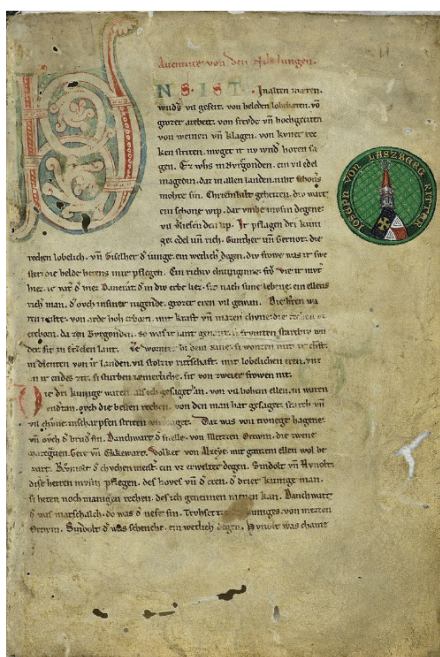 Auenture von den Nibelungen.
NS. IST. In alten mæren.
wnders vil geseit. von heleden lobebæren. võ
grozer arebeit. von frevde vñ hochgeciten
von weinen vñ klagen. von kvner rec
ken striten. mvget ir nv wnder horen sa
gen. Ez whs in Bvrgonden. ein vil edel
magedin. daz in allen landen. niht schoners
mohte sin. Chriemhilt geheizen. div wart
ein schone wip. dar vmbe mvsin degene
vil verliesen den lip. Ir pflagen dri kuni
ge edel vñ rich. Gunther vñ Gernot. die
rechen lobelich. vñ Giselher d iunge. ein wetlich degen. div frowe was ir swe
ster die helde hetens inir pflegen. Ein richiv chuniginne. frov Vte ir mvter
hiez. ir vater d hiez Dancrat. d in div erbe liez. sit nach sime lebene. ein ellens
rich man. d ovch in siner iugende. grozer eren vil gewan. Die herren wa
ren milte. von arde hoh erborn. mit kraft vñ mazen chvne. die rechen vz
erchorn. da zen Bvrgonden. so was ir lant genant. si frvmten starchiv wn
der. sit in Etzelen lant. Ze wormz bi dem Rine. si wonten mit ir chraft.
in dienten von ir landen. vil stolziv ritterschaft. mit lobelichen eren. vnz
an ir endes zit. si sturben iæmerliche. sit von zweier frowen nit.
Die dri kunige waren. als ich gesaget han. von vil hohem ellen. in waren
vndertan. ovch die besten rechen. von den man hat gesaget. starch vñ
vil chvne. in scharpfen striten vnverzaget. Daz was von tronege hagene.
vñ ovch d brvder sin. Danchwart d snelle. von Metzzen Ortwin. die zwene
marcgraven. Gere vñ Ekkewart. Volker von Alzeye. mit ganzem ellen wol be
wart. Rvmolt d chvchen meister. ein vz erwelter degen. Sindolt vñ Hvnolt.
dise herren mvsin pflegen. des hoves vñ d eren. d drier kunige man.
si heten noch manigen rechen. des ich genennen nienen kan. Danchwart
d was marschalch. do was d nefe sin. Trvhsetze des kuniges. von metzen
Ortwin. Sindolt d was schenche. ein wetlich degen. Hvnolt was chame
JOSEPH VON LASZBERG RITTER